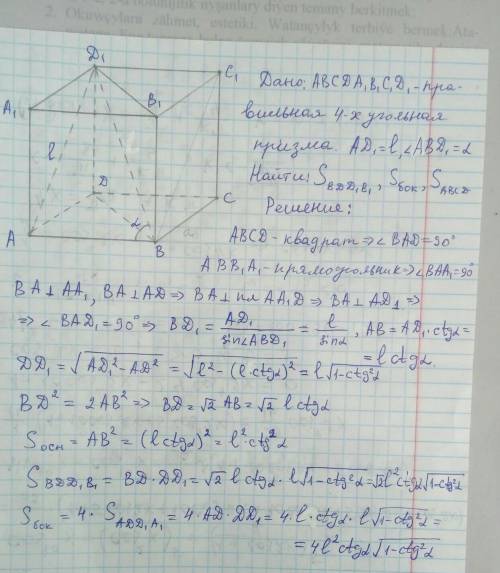 2. Okuwçylara zähmet, estetiki, Watançylyk terbiýe bermek:
D₁
C₁
A₁
B₁
l
D
C
A
α
B
Дано: ABCDA₁B₁C₁D₁ - пра-
вильная 4-х угольная
призма. AD₁=l, ∠ABD₁=α
Найти: S_BDD₁B₁, S_бок, S_ABCD
Решение:
ABCD - квадрат => ∠BAD=90°
ABB₁A₁ - прямоугольник => ∠BAA₁=90°
BA⊥AA₁, BA⊥AD => BA⊥ пл AA₁D => BA⊥AD₁ =>
=> ∠BAD₁=90° => BD₁ = AD₁/sin∠ABD₁ = l/sinα, AB=AD₁·ctgα=
= l ctgα.
DD₁=√(AD₁²-AD²) = √(l²-(l·ctgα)²) = l√(1-ctg²α)
BD² = 2AB² => BD=√2 AB=√2 l ctgα
S_осн = AB² = (l ctgα)² = l²·ctg²α
S_BDD₁B₁ = BD·DD₁ = √2 l ctgα · l√(1-ctg²α) = √2 l² ctgα√(1-ctg²α)
S_бок = 4·S_ADD₁A₁ = 4·AD·DD₁ = 4·l·ctgα·l√(1-ctg²α) =
= 4l²ctgα√(1-ctg²α)